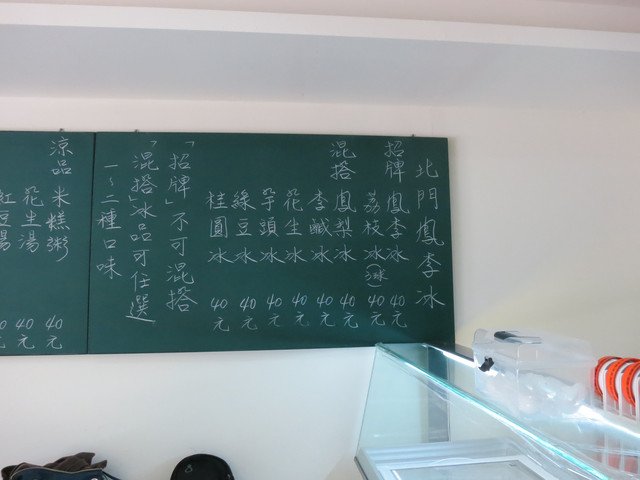 北門鳳李冰
招牌 鳳李冰 40元
荔枝冰(球) 40元
混搭 鳳梨冰 40元
李鹹冰 40元
花生冰 40元
芋頭冰 40元
綠豆冰 40元
桂圓冰 40元
「招牌」不可混搭
「混搭」冰品可任選
一~二種口味
涼品 米糕粥 40元
花生湯 40元
紅豆湯